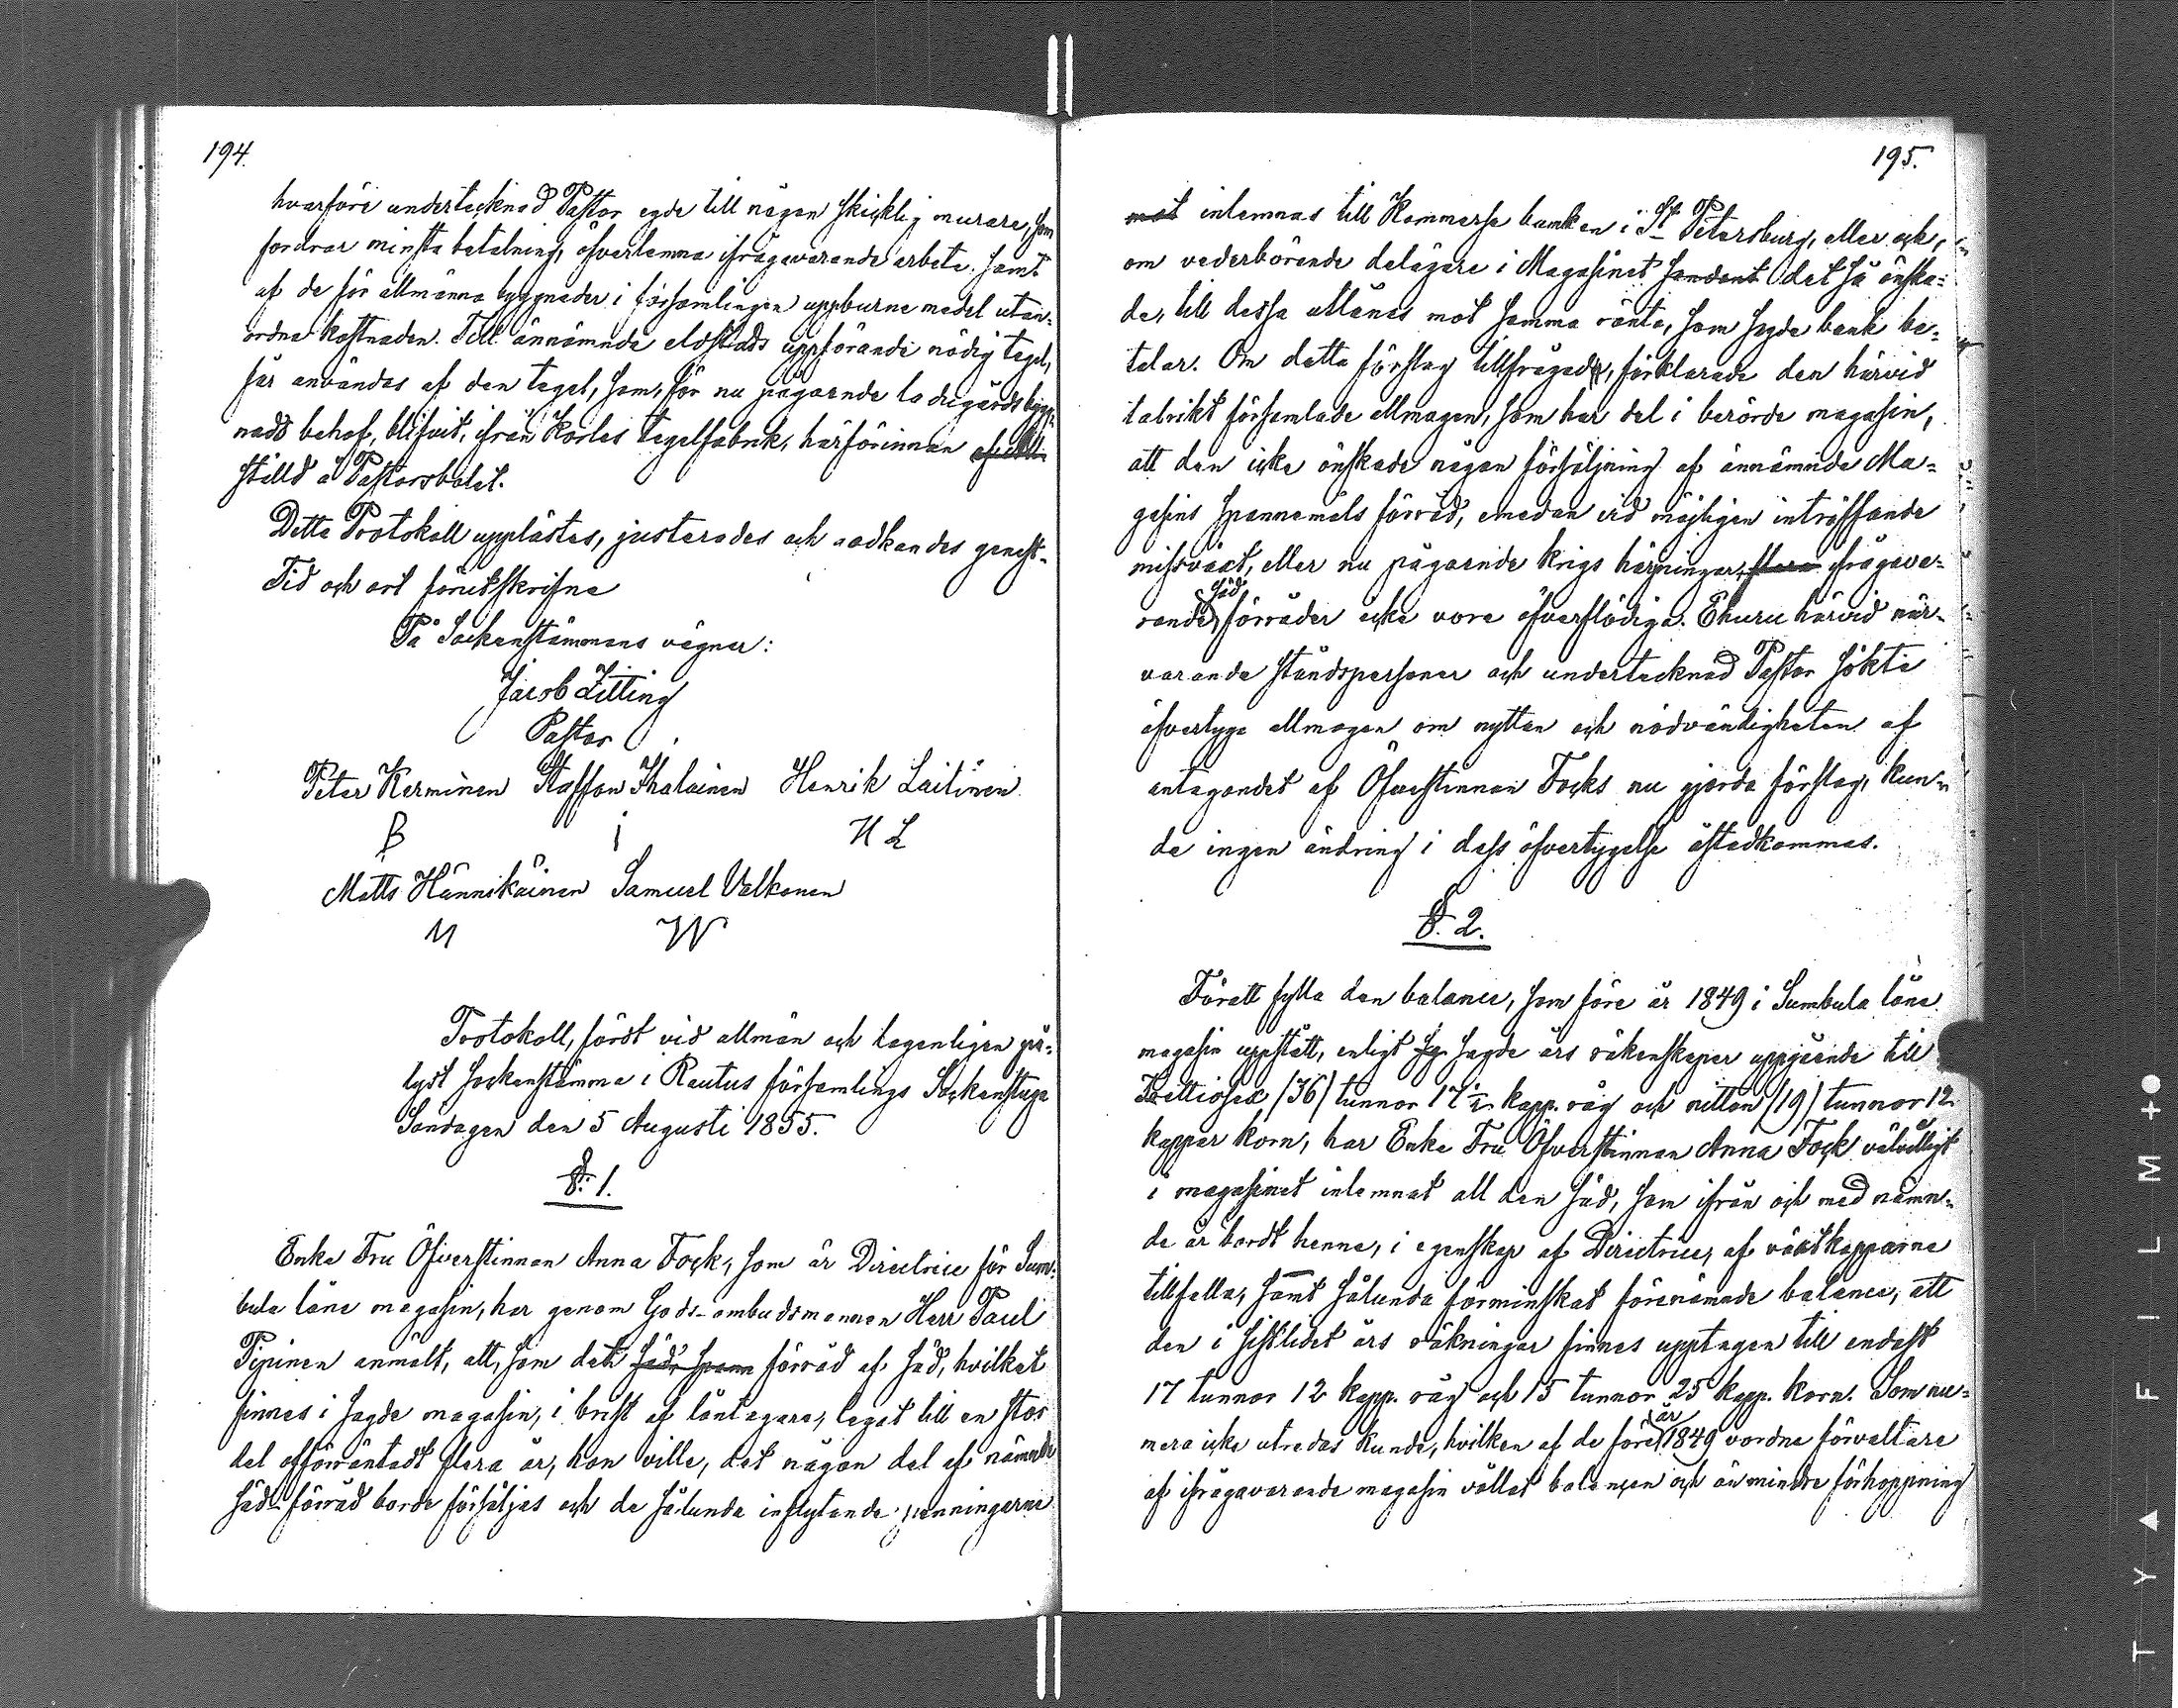 194.
hvarföre undertecknad Pastor egde till någon skicklig murare, som
fordrar minsta betalning, öfverlemna ifrågavarande arbete samt
af de för allmänna byggnader i församlingen uppburne medel utan-
ordna kostnaden. Till ännämnde eldstads uppförande nödig tegel,
får användas af den tegel, som, för nu pågående ladugårds bygg-
nads behof, blifvit, ifrån Korles tegelfabrik, härförinnan
ställd å Pastorsbolet.
Detta Protokoll upplästes, justerades och godkändes genast.
Tid och ort förutskrifne
På Sockenstämmans vägnar:
Jacob Zitting
Pastor
Peter Kerminen Staffan Ihalainen Henrik Laitinen
B i H L
Matts Hännikäinen Samuel Valkonen
M W
Protokoll, fördt vid allmän och lagenligen på-
lyst sockenstämma i Rautus församlings Sockenstuga
Söndagen den 5 Augusti 1855.
§. 1.
Enke Fru Öfverstinnan Anna Fock, som är Directrice för Sum-
bula låne magasin, har genom Gods-ombudsmannen Herr Paul
Pipinen anmält, att, som det säds spann förråd af säd, hvilket
finnes i sagde magasin, i brist af låntagare, legat till en stor
del oförräntadt flera år, hon ville, det någon del af nämnde
säds-förråd borde försäljas och de sålunda inflytande penningarne
195.
mot inlemnas till Kommerse banken i St Petersburg, eller ock,
om vederbörande delägare i Magasinet det så önska-
de, till dessa utlånas mot samma ränta, som sagde bank be-
talar. Om detta förslag tillfrågade, förklarade den härvid
talrikt församlade allmogen, som har del i berörde magasin,
att den icke önskade någon försäljning af ännämnde Ma-
gasins spannemåls förråd, emedan vid möjligen inträffande
missväxt, eller nu pågående krigs härjningar, flera ifrågava-
rande säd förråder icke vore öfverflödiga. Ehuru härvid när-
varande ståndspersoner och undertecknad Pastor sökte
öfvertyga allmogen om nyttan och nödvändigheten af
antagandet af Öfverstinnan Focks nu gjorda förslag, kun-
de ingen ändring i dess öfvertygelse åstadkommas.
§. 2.
Föratt fylla den balance, som före år 1849 i Sumbula låne
magasin uppstått, enligt sg sagde års räkenskaper uppgående till
Trettiosex /36/ tunnor 17 1/2 kapp. råg och nitton /19/ tunnor 12
kappar korn, har Enke Fru Öfverstinnan Anna Fock välvilligt
i magasinet inlemnat all den säd, som ifrån och med nämn-
de år bordt henne, i egenskap af Directrice, af växtkapparne
tillfalla, samt sålunda förminskat förenämnde balance, att
den i sistlidet års räkningar finnes upptagen till endast
17 tunnor 12 kapp. råg och 15 tunnor 25 kapp. korn. Som nu-
mera icke utredas kunde, hvilken af de före år 1849 vordne förvaltare
af ifrågavarande magasin vållat balancen och än mindre förhoppning
TYA FILM